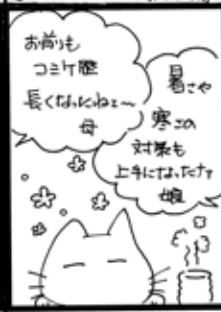 お前も
コミケ歴
長くなったねェ〜
母
暑さや
寒さの
対策も
上手になったナァ
娘